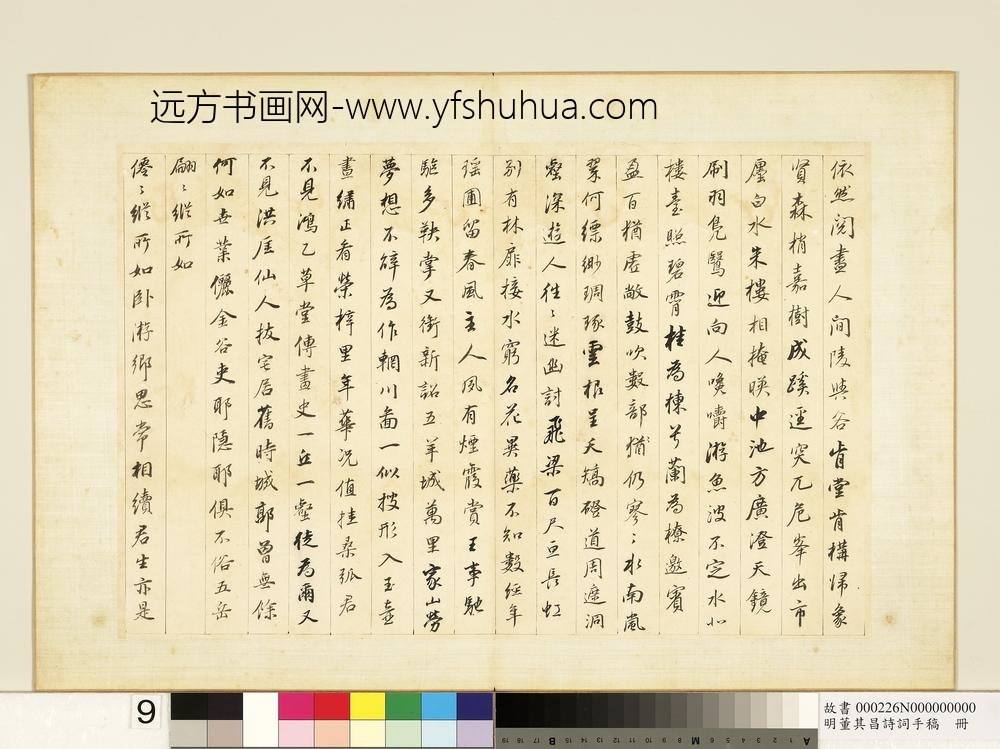 远方书画网-www.yfshuhua.com
依然閱盡人間陵與谷肯堂肯構歸象
賢森梢嘉樹成蹊逕突兀危峯出市
廛白水朱樓相掩暎中池方廣澄天鏡
刷羽鳧鷖迎向人喚嚼游魚波不定水心
樓臺照碧霄桂為棟兮蘭為橑邀賓
盈百猶虛敞鼓吹數部猶仍寥〻水南嵐
翠何縹緲琱琢雲根呈天矯磴道周遮洞
壑深遊人往〻迷幽討飛梁百尺亘長虹
別有林扉接水窮名花異藥不知數經年
瑶圃留春風主人夙有煙霞賞王事馳
驅多鞅掌又銜新詔五羊城萬里家山勞
夢想不辭為作輞川圖一似披形入玉壺
晝繡正看榮梓里年華況值挂桑弧君
不見鴻乙草堂傳畫史一丘一壑徒為爾又
不見洪厓仙人拔宅居舊時城郭曾無餘
何如世業儷金谷吏耶隱耶俱不俗五岳
翩〻縱所如
僊〻縱所如卧游鄉思常相續君生亦是
9
故書 000226N000000000
明董其昌詩詞手稿 冊